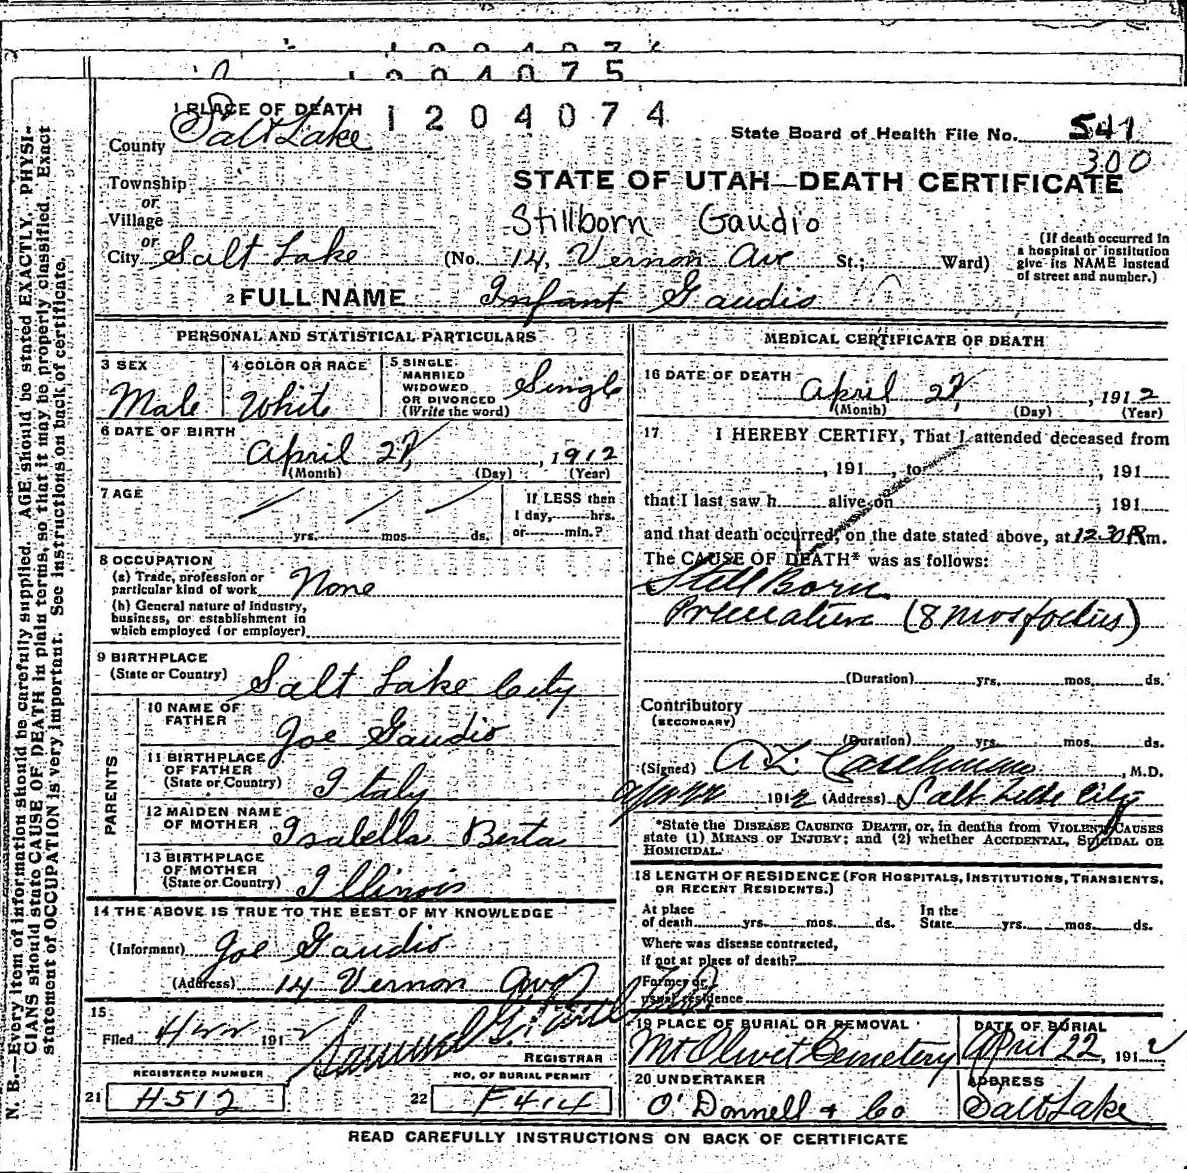 1204075
1204074
1 PLACE OF DEATH
State Board of Health File No. 541
300
County Salt Lake
STATE OF UTAH—DEATH CERTIFICATE
Township
or
Village
Stillborn Gaudio
or
City Salt Lake (No. 14, Vernon Ave St.; Ward)
(If death occurred in a hospital or institution give its NAME instead of street and number.)
2 FULL NAME Infant Gaudio
PERSONAL AND STATISTICAL PARTICULARS
3 SEX
Male
4 COLOR OR RACE
White
5 SINGLE MARRIED WIDOWED OR DIVORCED (Write the word)
Single
6 DATE OF BIRTH
April 22, 1912
(Month) (Day) (Year)
7 AGE
yrs. mos. ds.
If LESS then 1 day, hrs. or min.?
8 OCCUPATION
(a) Trade, profession or particular kind of work None
(b) General nature of industry, business, or establishment in which employed (or employer)
9 BIRTHPLACE
(State or Country) Salt Lake City
PARENTS
10 NAME OF FATHER
Joe Gaudio
11 BIRTHPLACE OF FATHER
(State or Country) Italy
12 MAIDEN NAME OF MOTHER Isabella Berta
13 BIRTHPLACE OF MOTHER
(State or Country) Illinois
14 THE ABOVE IS TRUE TO THE BEST OF MY KNOWLEDGE
(Informant) Joe Gaudio
(Address) 14 Vernon Ave
15
Filed 4/22 1912
REGISTRAR
REGISTERED NUMBER
21 H512
NO. OF BURIAL PERMIT
22 F414
MEDICAL CERTIFICATE OF DEATH
16 DATE OF DEATH April 22, 1912
(Month) (Day) (Year)
17 I HEREBY CERTIFY, That I attended deceased from
, 191 , to , 191
that I last saw h alive on , 191
and that death occurred, on the date stated above, at 12:30 m.
The CAUSE OF DEATH* was as follows:
Still Born
Premature (8 mos foetus)
(Duration) yrs. mos. ds.
Contributory
(SECONDARY)
(Duration) yrs. mos. ds.
(Signed) , M.D.
1912 (Address) Salt Lake City
*State the DISEASE CAUSING DEATH, or, in deaths from VIOLENT CAUSES
state (1) MEANS OF INJURY; and (2) whether ACCIDENTAL, SUICIDAL OR
HOMICIDAL.
18 LENGTH OF RESIDENCE (FOR HOSPITALS, INSTITUTIONS, TRANSIENTS, OR RECENT RESIDENTS.)
At place of death yrs. mos. ds.
In the State yrs. mos. ds.
Where was disease contracted,
if not at place of death?
Former or
usual residence
19 PLACE OF BURIAL OR REMOVAL
Mt Olivet Cemetery
DATE OF BURIAL
April 22, 1912
20 UNDERTAKER
O'Donnell & Co
ADDRESS
Salt Lake
READ CAREFULLY INSTRUCTIONS ON BACK OF CERTIFICATE
N. B.—Every item of information should be carefully supplied. AGE should be stated EXACTLY. PHYSI-
CIANS should state CAUSE OF DEATH in plain terms, so that it may be properly classified. Exact
statement of OCCUPATION is very important. See instructions on back of certificate.